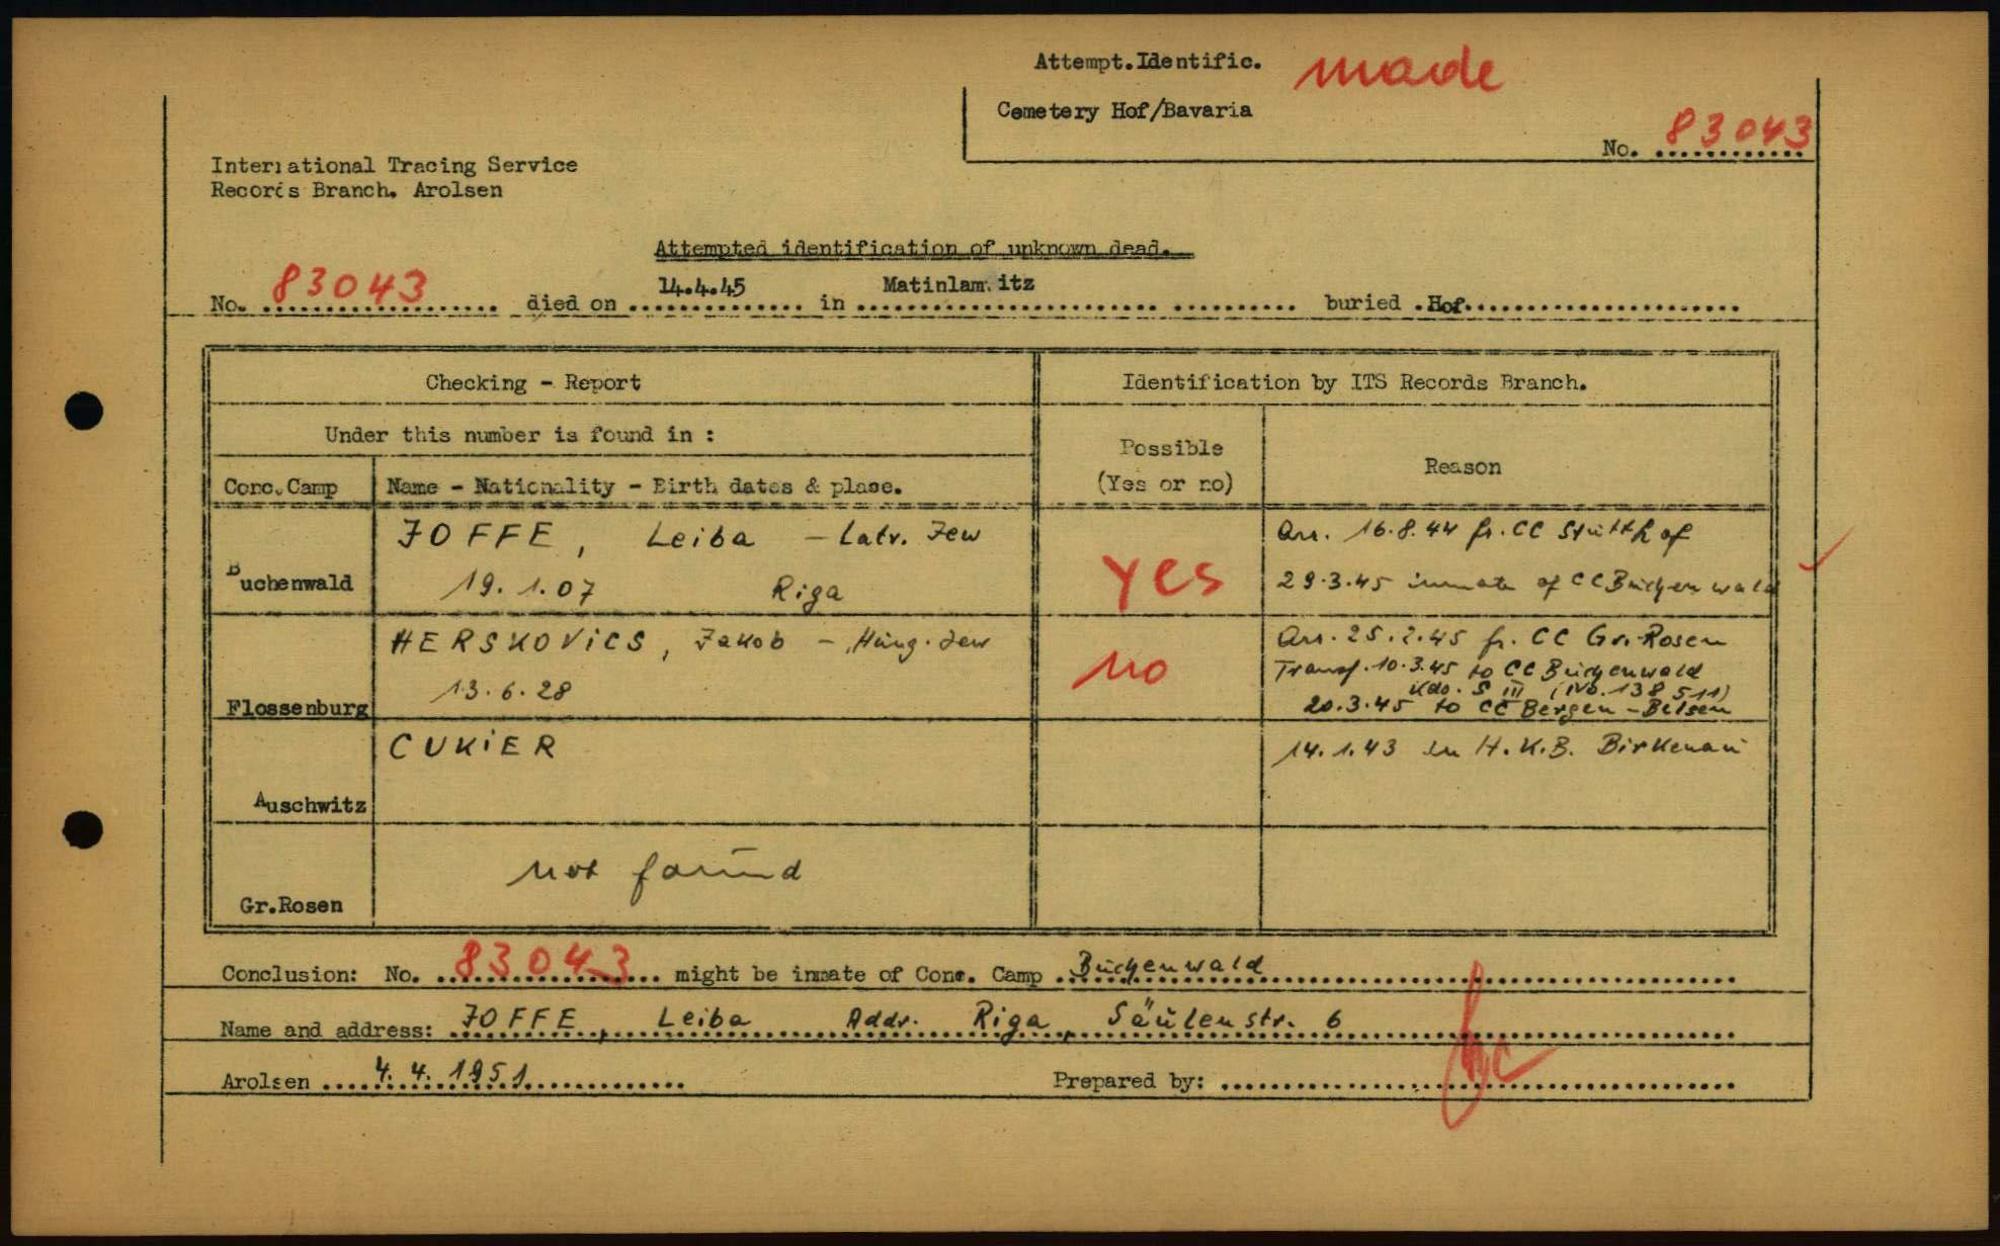 Attempt.Identific. made
Cemetery Hof/Bavaria
No. 83043
International Tracing Service
Records Branch. Arolsen
Attempted identification of unknown dead.
No. 83043 died on 14.4.45 in Matinlamitz buried Hof
Checking - Report
Identification by ITS Records Branch.
Under this number is found in :
Possible
(Yes or no)
Reason
Conc.Camp
Name - Nationality - Birth dates & plase.
Buchenwald
JOFFE, Leiba - Latv. Jew
19.1.07 Riga
yes
Arr. 16.8.44 fr. CC Stutthof
29.3.45 inmate of CC Buchenwald
Flossenburg
HERSKOVICS, Jakob - Hung. Jew
13.6.28
no
Arr. 25.2.45 fr. CC Gr.-Rosen
Transf. 10.3.45 to CC Buchenwald
Kdo. S III (No. 138511)
20.3.45 to CC Bergen-Belsen
Auschwitz
CUKIER
14.1.43 in H.K.B. Birkenau
Gr.Rosen
not found
Conclusion: No. 83043 might be inmate of Conc. Camp Buchenwald
Name and address: JOFFE, Leiba Addr. Riga, Säulenstr. 6
Arolsen 4.4.1951 Prepared by: